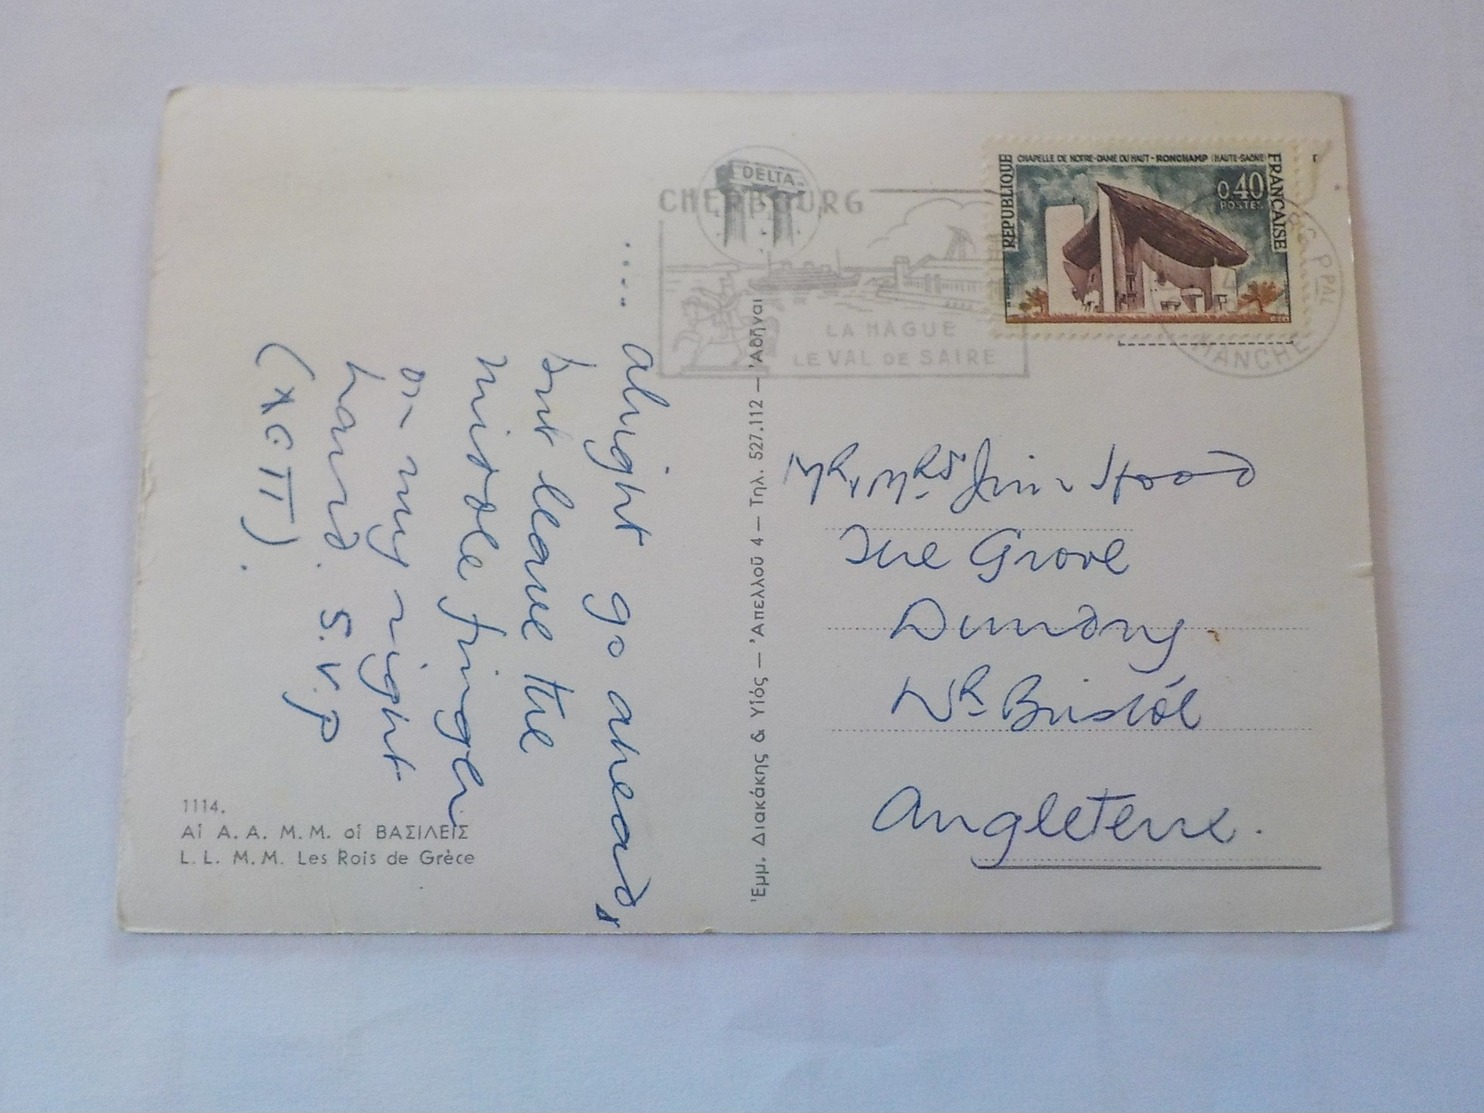 .... alright go ahead,
but leave the
middle finger
on my right
hand. S.V.P
1114.
Αἱ Α. Α. Μ.Μ. οἱ ΒΑΣΙΛΕΙΣ
L.L. M.M. Les Rois de Grèce
Ἐμμ. Διακάκης & Υἱός — Ἀπελλοῦ 4 — Τηλ. 527.112 — Ἀθῆναι
DELTA
CHERBOURG
LA HAGUE
LE VAL DE SAIRE
CHAPELLE DE NOTRE-DAME DU HAUT - RONCHAMP (HAUTE-SAONE)
REPUBLIQUE
FRANCAISE
0,40
POSTES
PPAL
MANCHE
Mr, Mrs Jim Hood
The Grove
Dundry
Nr Bristol
Angleterre.